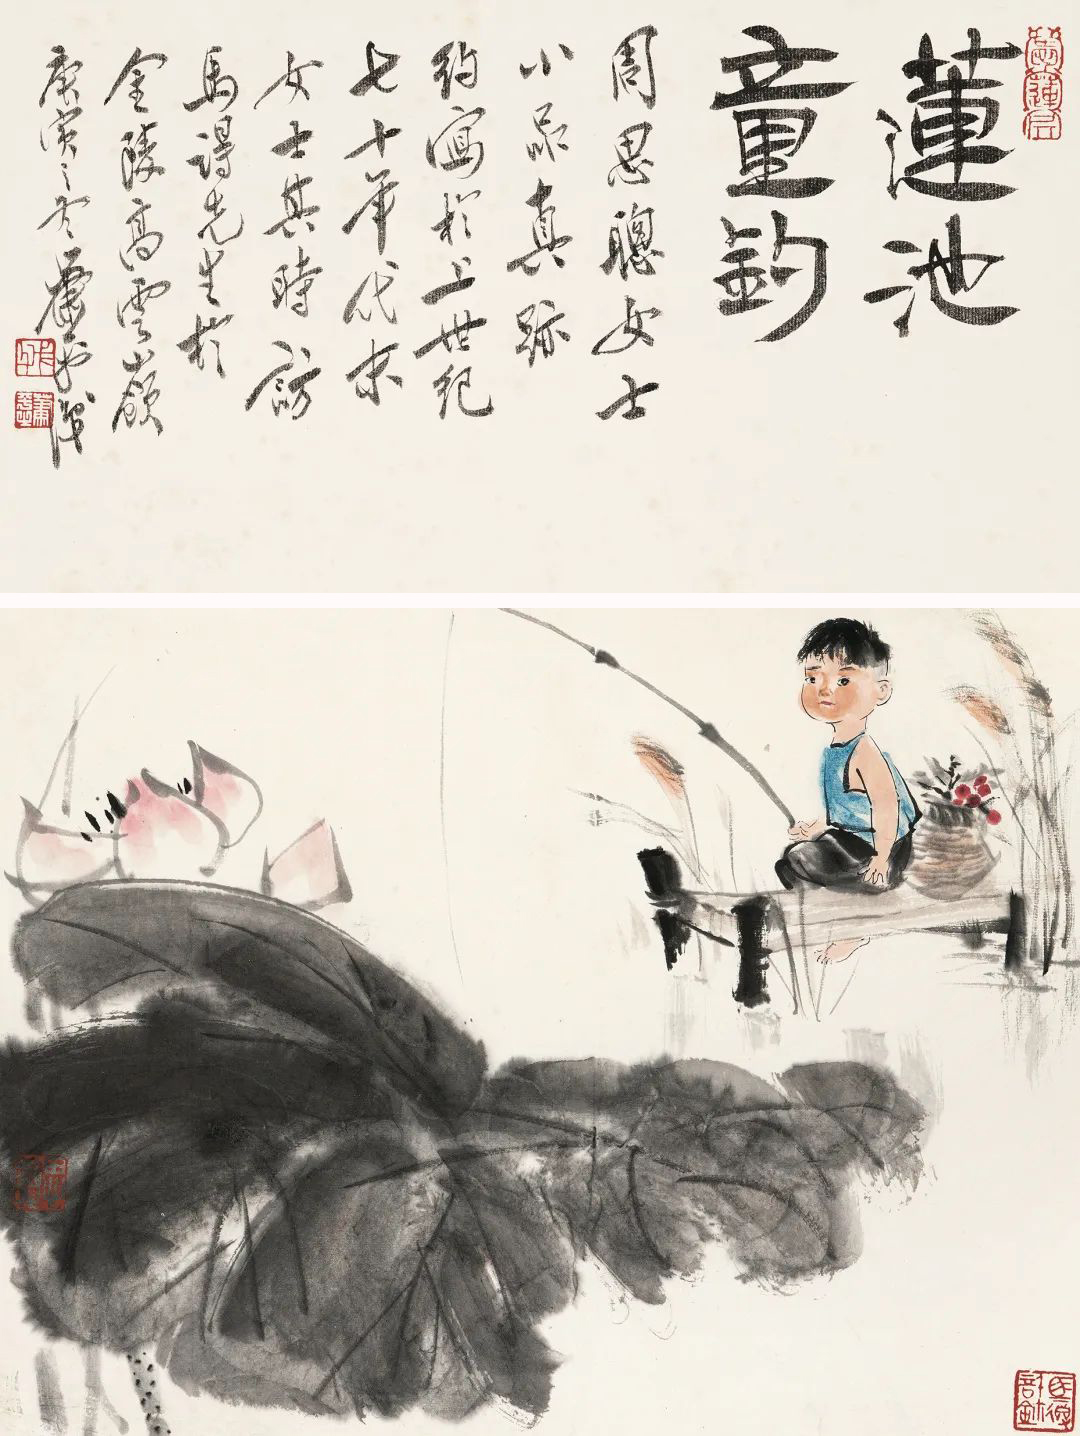 蓮池
童釣
周思聰女士
小品真跡
約寫於上世紀
七十年代末
女士其時訪
馬得先生於
金陵高雲嶺
庚寅之冬蕭平識